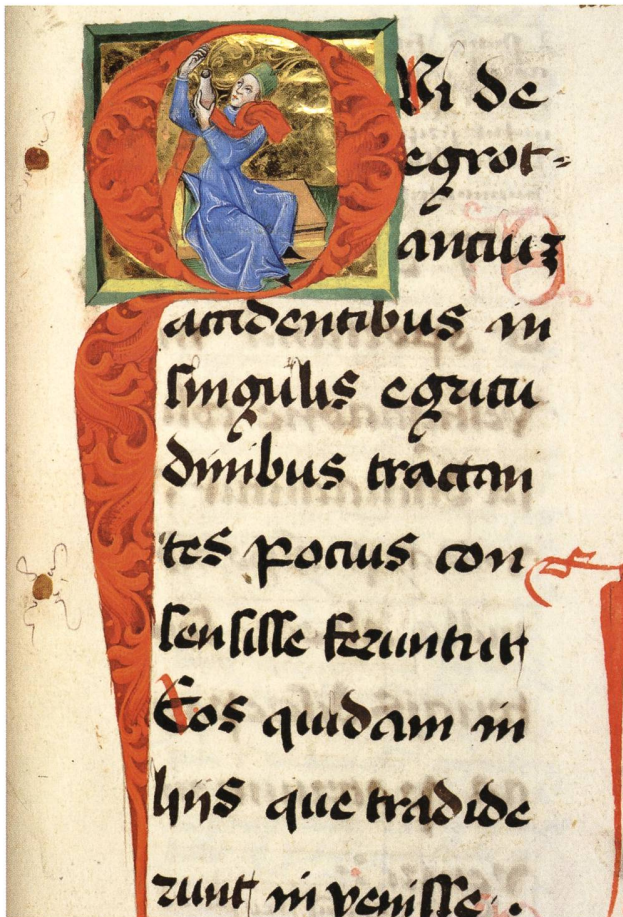 Qui de
egrot=
antiuʒ
accidentibus in
singulis egritu
dinibus tractan
tes pocius con
sensisse feruntur
Eos quidam in
hijs que tradide
runt in venisse.